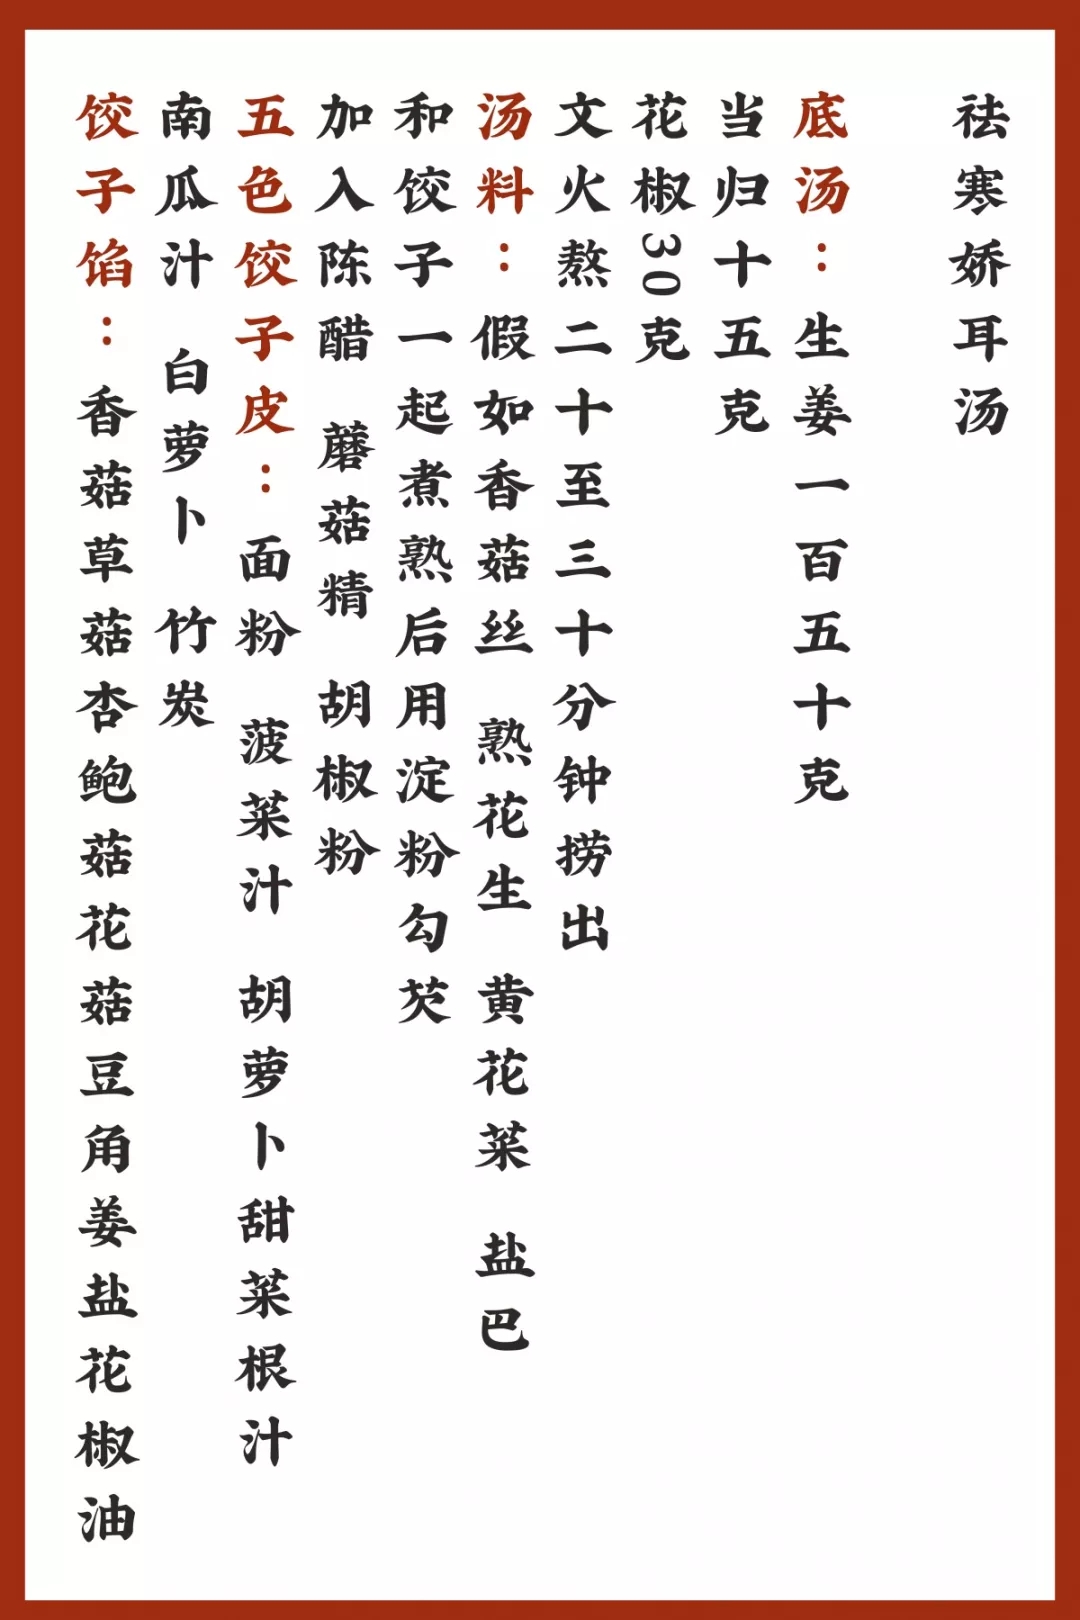 祛寒娇耳汤
底汤：生姜一百五十克
当归十五克
花椒30克
文火熬二十至三十分钟捞出
汤料：假如香菇丝 熟花生 黄花菜 盐巴
和饺子一起煮熟后用淀粉勾芡
加入陈醋 蘑菇精 胡椒粉
五色饺子皮：面粉 菠菜汁 胡萝卜甜菜根汁
南瓜汁 白萝卜 竹炭
饺子馅：香菇草菇杏鲍菇花菇豆角姜盐花椒油